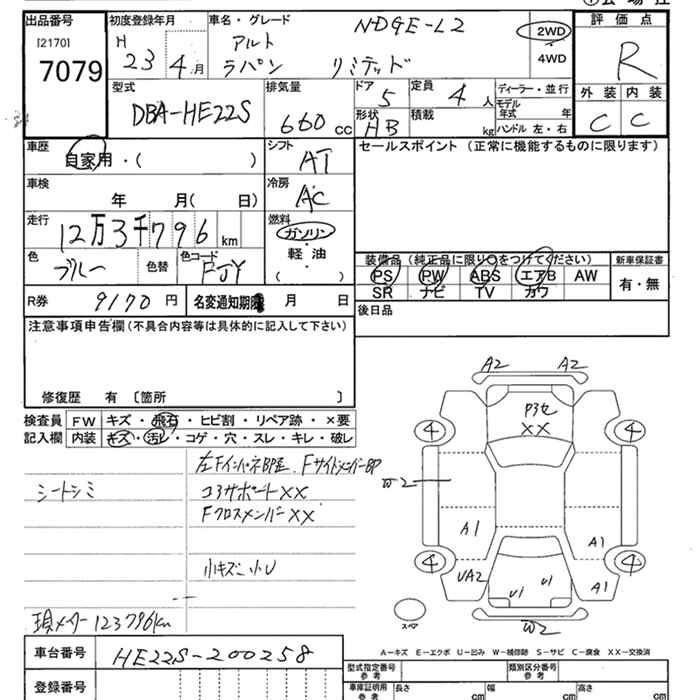 出品番号
[2170]
7079
初度登録年月
H
23 4月
車名・グレード
NDGE-L2
アルト
ラパン リミテッド
2WD
4WD
評価点
R
外装 内装
C C
型式
DBA-HE22S
排気量
660 cc
ドア
5
定員
4人
形状
HB
積載
kg
ディーラー・並行
モデル年式 年
ハンドル 左・右
車歴
自家用・( )
シフト
AT
セールスポイント (正常に機能するものに限ります)
車検
年 月( 日)
冷房
AC
走行
12万3千796 km
燃料
ガソリン
軽油
( )
色
ブルー
色替
色コード
FJY
装備品 (純正品に限り○をつけてください)
PS PW ABS エアB AW
SR ナビ TV カワ
新車保証書
有・無
R券
9170円
名変通知期限 月 日
後日品
注意事項申告欄 (不具合内容等は具体的に記入して下さい)
修復歴 有 〔箇所 〕
検査員記入欄
FW キズ・飛石・ヒビ割・リペア跡・×要
内装 キズ・汚レ・コゲ・穴・スレ・キレ・破レ
左FインパネBP歪 FサイドメンバーBP
シートシミ
コアサポートXX
FクロスメンバーXX
小キズ 小U
現メーター123796km
A2 A2
P3セ
XX
4 4
W2
A1 A1
4 4
UA2 U1 U1 A1
スペア
W2
A-キズ E-エクボ U-凹み W-補修跡 S-サビ C-腐食 XX-交換済
車台番号
HE22S-200258
型式指定番号
参考
類別区分番号
参考
登録番号
車庫証明用
参考
長さ cm
幅 cm
高さ cm